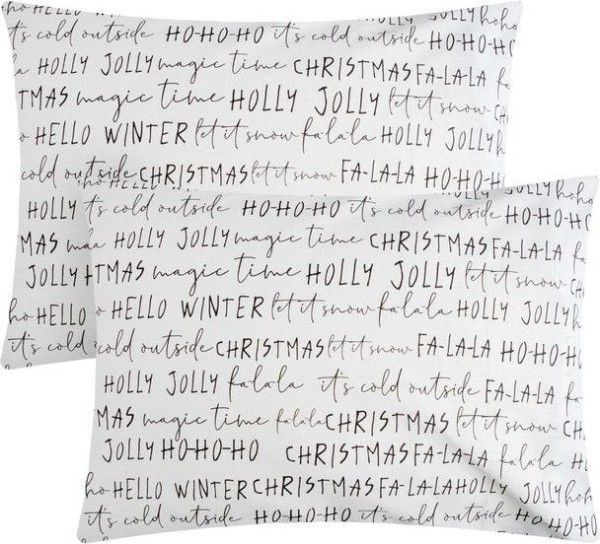 HOLLY JOLLY hoho
it's cold outside HO-HO-HO it's cold outside HO-HO-H
a HOLLY JOLLY magic time CHRISTMAS FA-LA-LA
TMAS magic time HOLLY JOLLY let it snow CH
o HELLO WINTER let it snow falala HOLLY JOLLY h
cold outside CHRISTMAS let it snow FA-LA-LA HO-HO-H
HOLLY
MAS ma
JOLLY H
ho HELLO
it's cold
ho HELLO JOLLY hoho
it's cold outside HO-HO-HO it's cold outside HO-HO-HO
a HOLLY JOLLY magic time CHRISTMAS FA-LA-LA
TMAS magic time HOLLY JOLLY let it snow CH
o HELLO WINTER let it snow falala HOLLY JOLLY h
cold outside CHRISTMAS let it snow FA-LA-LA HO-HO-H
HOLLY JOLLY falala it's cold outside FA-LA-LA fa
MAS magic time falala CHRISTMAS let it snow CH
JOLLY HO-HO-HO CHRISTMAS FA-LA-LA falala H
ho HELLO WINTER CHRISTMAS FA-LA-LA HOLLY JOLLY ho
it's cold outside HO-HO-HO it's cold outside HO-HO